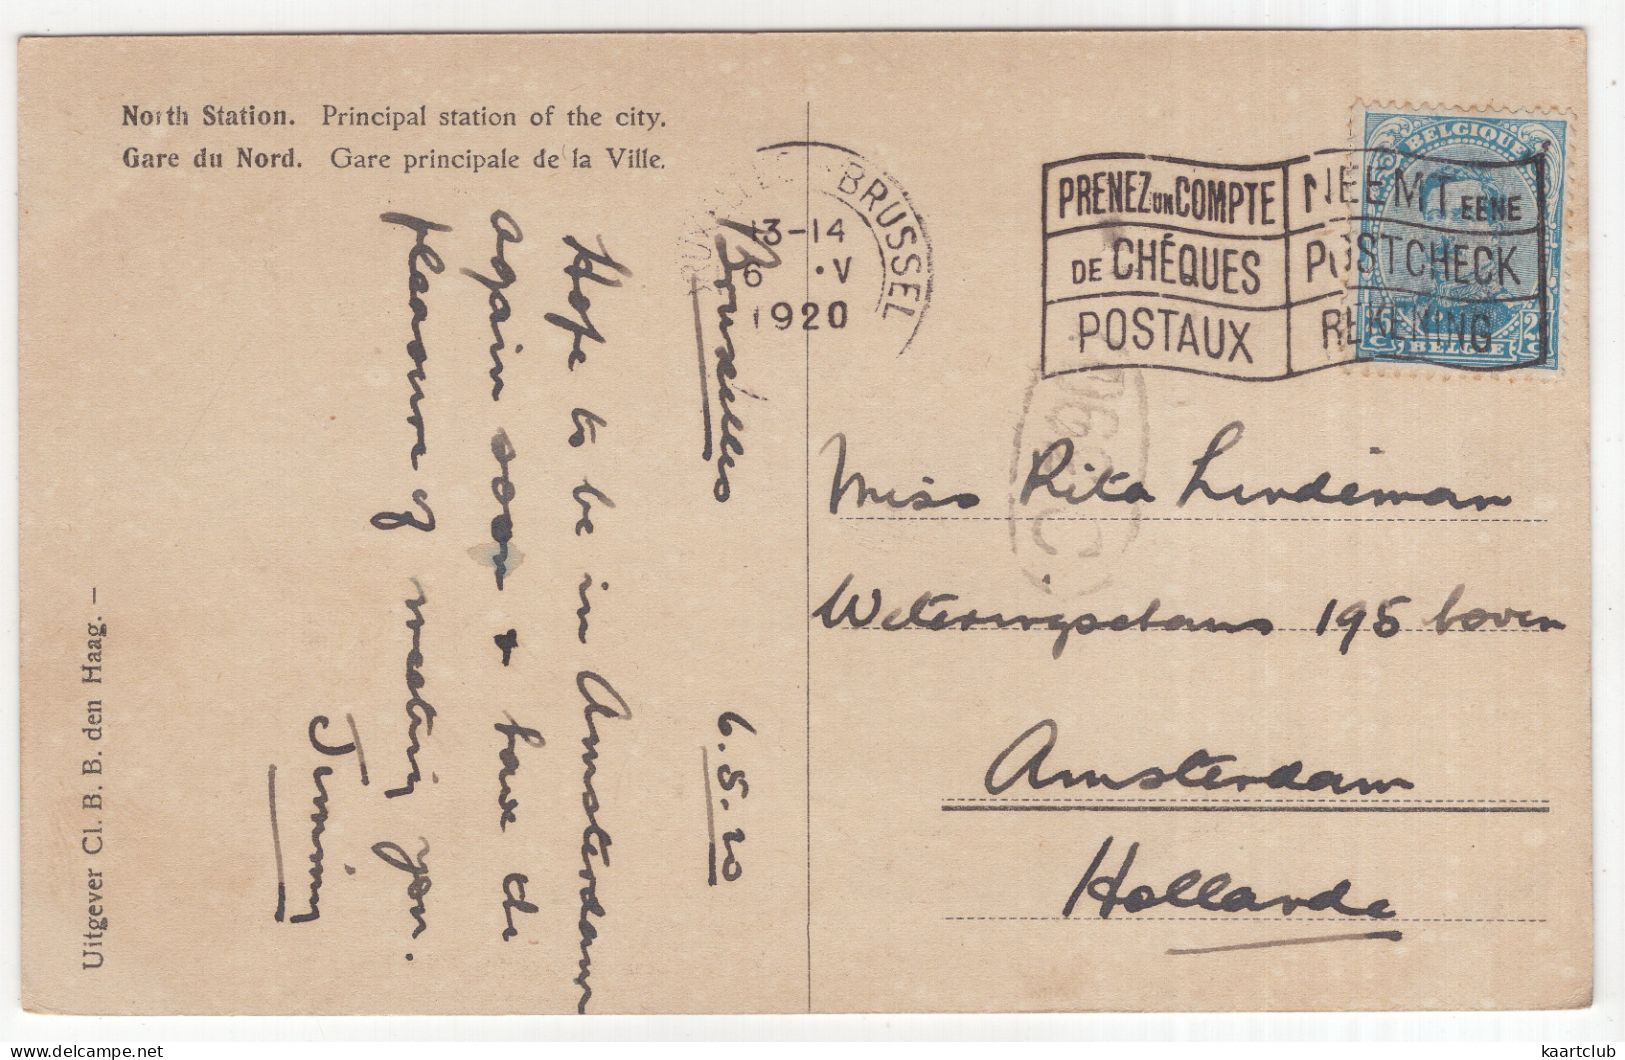 North Station. Principal station of the city.
Gare du Nord. Gare principale de la Ville.
BRUSSEL
13-14
6 . V
1920
PRENEZ UN COMPTE
DE CHÉQUES
POSTAUX
NEEMT EENE
POSTCHECK
REKENING
BELGIQUE
25 C
BELGIË
Brouselles
6.5.20
Hope to be in Amsterdam
again soon & have de
pleasure of meeting you.
Jimmy
Miss Rita Lindeman
Weteringschans 195 boven
Amsterdam
Hollande
Uitgever Cl. B. B. den Haag. –
kaartclub